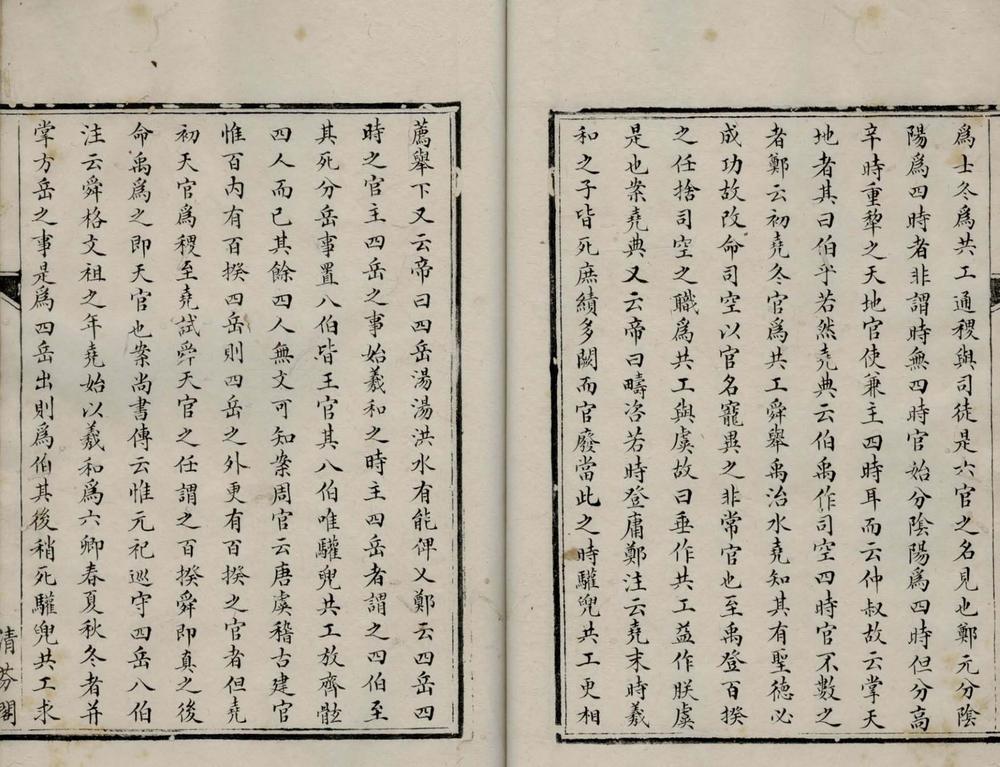 爲士冬爲共工通稷與司徒是六官之名見也鄭元分陰
陽爲四時者非謂時無四時官始分陰陽爲四時但分高
辛時重犂之天地官使兼主四時耳而云仲叔故云掌天
地者其曰伯乎若然堯典云伯禹作司空四時官不數之
者鄭云初堯冬官爲共工舜舉禹治水堯知其有聖徳必
成功故改命司空以官名寵異之非常官也至禹登百揆
之任捨司空之職爲共工與虞故曰垂作共工益作朕虞
是也案堯典又云帝曰疇咨若時登庸鄭注云堯末時羲
和之子皆死庶績多闕而官廢當此之時驩兜共工更相
薦舉下又云帝曰四岳湯湯洪水有能俾乂鄭云四岳四
時之官主四岳之事始羲和之時主四岳者謂之四伯至
其死分岳事置八伯皆王官其八伯唯驩兜共工放齊骸
四人而已其餘四人無文可知案周官云唐虞稽古建官
惟百内有百揆四岳則四岳之外更有百揆之官者但堯
初天官爲稷至堯試舜天官之任謂之百揆舜即真之後
命禹爲之即天官也案尚書傳云惟元祀巡守四岳八伯
注云舜格文祖之年堯始以羲和爲六卿春夏秋冬者并
掌方岳之事是爲四岳出則爲伯其後稍死驩兜共工求
清芬閣